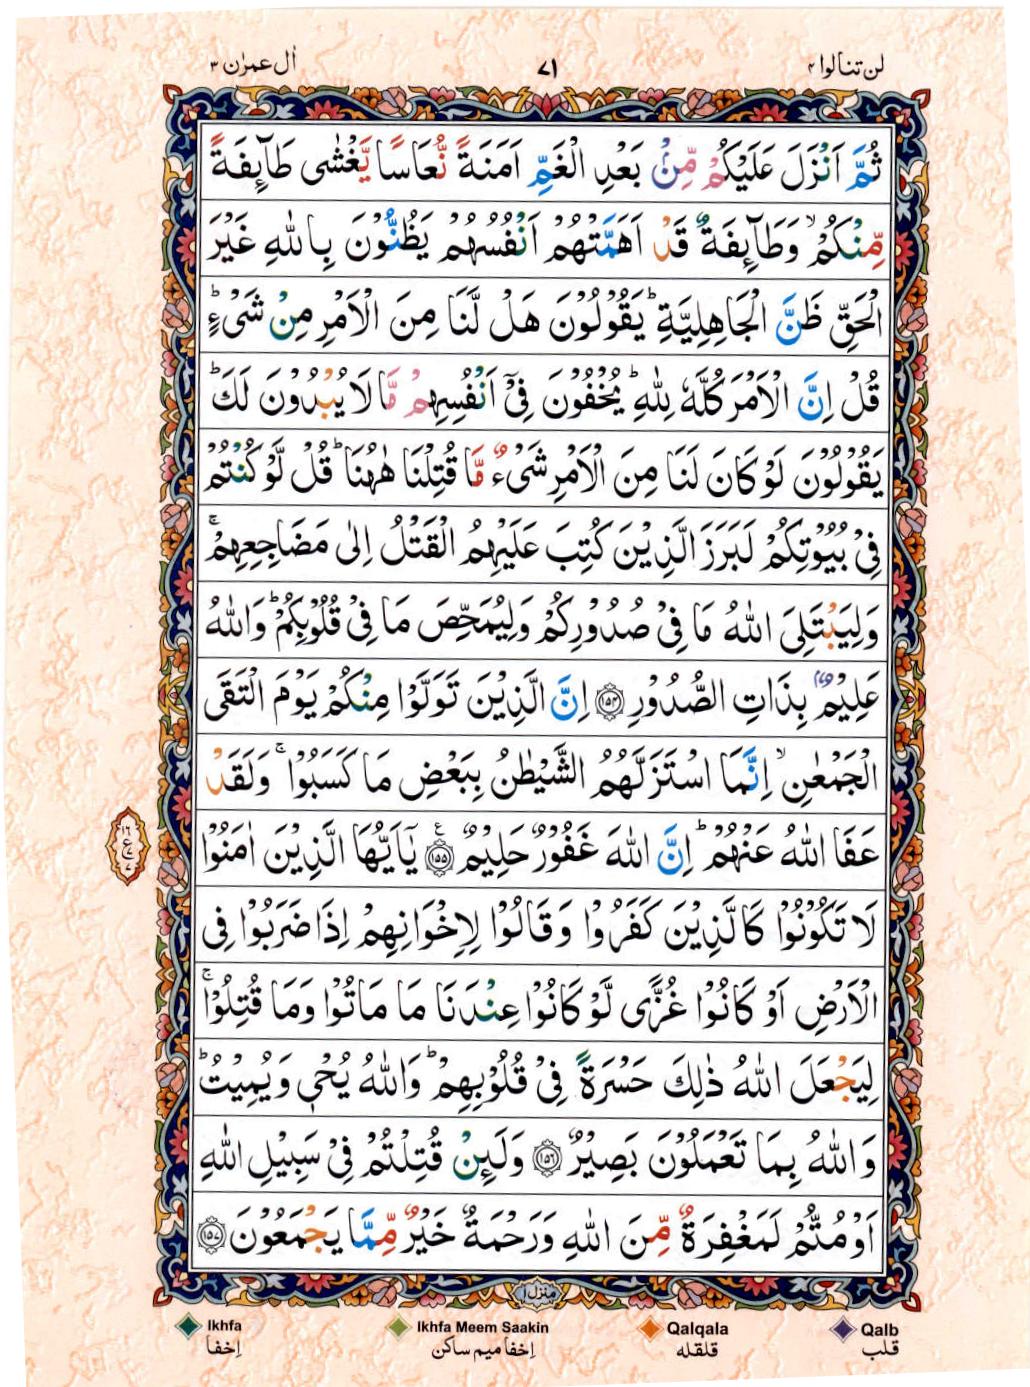 لن تنالوا ۴ ۷۱ اٰل عمرٰن ۳
ثُمَّ اَنْزَلَ عَلَيْكُمْ مِّنْۢ بَعْدِ الْغَمِّ اَمَنَةً نُّعَاسًا يَّغْشٰى طَآئِفَةً
مِّنْكُمْ ۙ وَطَآئِفَةٌ قَدْ اَهَمَّتْهُمْ اَنْفُسُهُمْ يَظُنُّوْنَ بِاللّٰهِ غَيْرَ
الْحَقِّ ظَنَّ الْجَاهِلِيَّةِ ؕ يَقُوْلُوْنَ هَلْ لَّنَا مِنَ الْاَمْرِ مِنْ شَىْءٍ ؕ
قُلْ اِنَّ الْاَمْرَ كُلَّهٗ لِلّٰهِ ؕ يُخْفُوْنَ فِىْۤ اَنْفُسِهِمْ مَّا لَا يُبْدُوْنَ لَكَ ؕ
يَقُوْلُوْنَ لَوْ كَانَ لَنَا مِنَ الْاَمْرِ شَىْءٌ مَّا قُتِلْنَا هٰهُنَا ؕ قُلْ لَّوْ كُنْتُمْ
فِىْ بُيُوْتِكُمْ لَبَرَزَ الَّذِيْنَ كُتِبَ عَلَيْهِمُ الْقَتْلُ اِلٰى مَضَاجِعِهِمْ ۚ
وَلِيَبْتَلِىَ اللّٰهُ مَا فِىْ صُدُوْرِكُمْ وَلِيُمَحِّصَ مَا فِىْ قُلُوْبِكُمْ ؕ وَاللّٰهُ
عَلِيْمٌۢ بِذَاتِ الصُّدُوْرِ ۝۱۵۴ اِنَّ الَّذِيْنَ تَوَلَّوْا مِنْكُمْ يَوْمَ الْتَقَى
الْجَمْعٰنِ ۙ اِنَّمَا اسْتَزَلَّهُمُ الشَّيْطٰنُ بِبَعْضِ مَا كَسَبُوْا ۚ وَلَقَدْ
عَفَا اللّٰهُ عَنْهُمْ ؕ اِنَّ اللّٰهَ غَفُوْرٌ حَلِيْمٌ ۝۱۵۵ يٰۤاَيُّهَا الَّذِيْنَ اٰمَنُوْا
لَا تَكُوْنُوْا كَالَّذِيْنَ كَفَرُوْا وَقَالُوْا لِاِخْوَانِهِمْ اِذَا ضَرَبُوْا فِى
الْاَرْضِ اَوْ كَانُوْا غُزًّى لَّوْ كَانُوْا عِنْدَنَا مَا مَاتُوْا وَمَا قُتِلُوْا ۚ
لِيَجْعَلَ اللّٰهُ ذٰلِكَ حَسْرَةً فِىْ قُلُوْبِهِمْ ؕ وَاللّٰهُ يُحْىٖ وَيُمِيْتُ ؕ
وَاللّٰهُ بِمَا تَعْمَلُوْنَ بَصِيْرٌ ۝۱۵۶ وَلَئِنْ قُتِلْتُمْ فِىْ سَبِيْلِ اللّٰهِ
اَوْ مُتُّمْ لَمَغْفِرَةٌ مِّنَ اللّٰهِ وَرَحْمَةٌ خَيْرٌ مِّمَّا يَجْمَعُوْنَ ۝۱۵۷
منزل ۱
Ikhfa Ikhfa Meem Saakin Qalqala Qalb
اِخفا اِخفا میم ساکن قلقله قلب